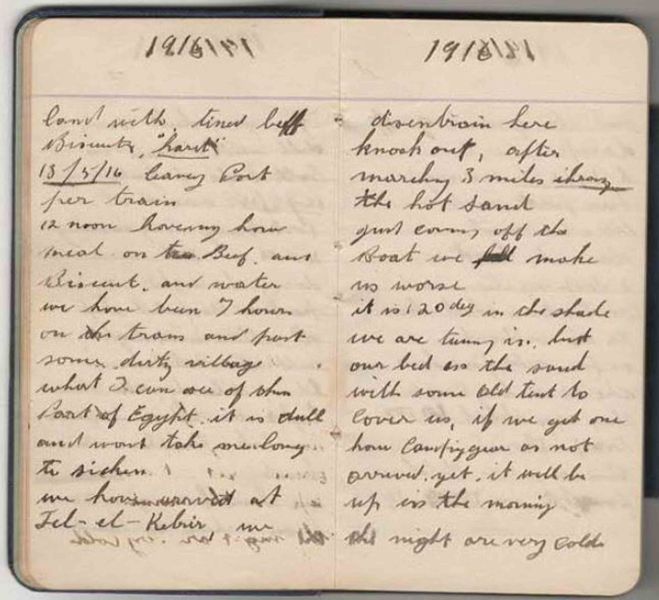 1916
land with tined beff
Biscuits, "hard"
13/5/16 leaving Port
per train
12 noon having how
meal on Beef. and
Biscuit. and water
we have been 7 hours
on the train and past
some dirty village
what I can see of this
Part of Egypt. it is dull
and wont take me long
to sicken.
we have arrived at
Tel-el-Kebir we
1916
disentrain here
knock out, after
marching 3 miles
the hot sand
just coming off the
Boat we make
us worse
it is 120 deg in the shade
we are turning in. but
our bed on the sand
with some old tent to
cover us, if we get one
how Camping gear as not
arrived. yet. it will be
up in the morning
the night are very cold